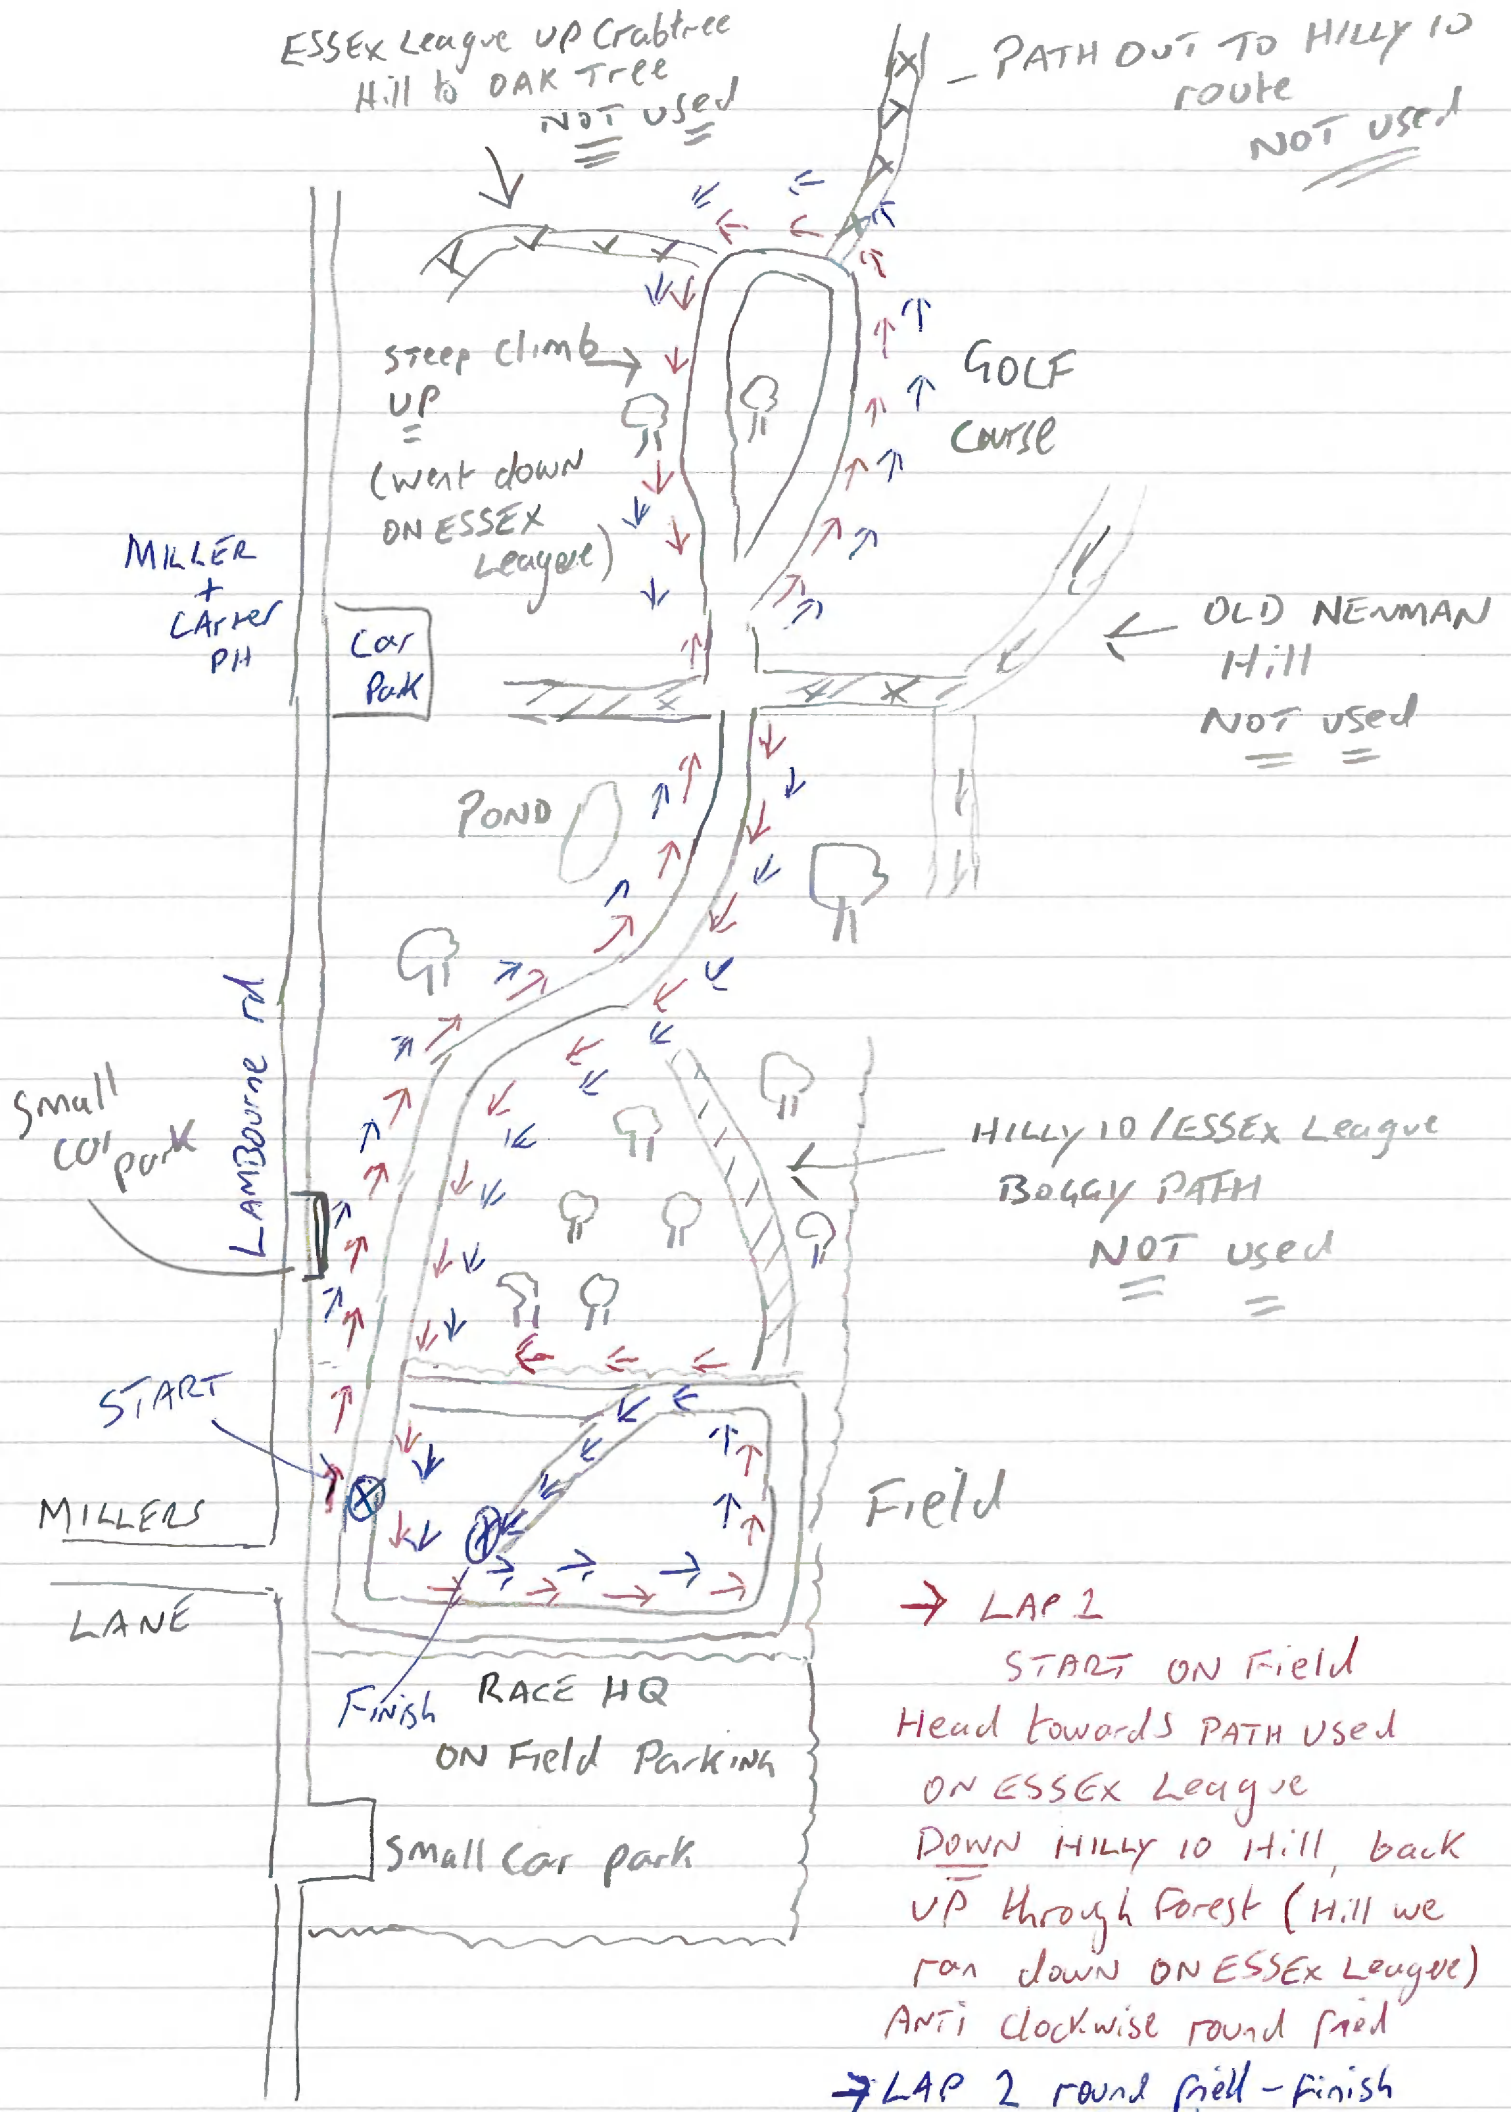 ESSEX League UP Crabtree
Hill to OAK Tree
NOT Used
PATH OUT TO HILLY 10
route
NOT Used
Steep Climb
UP
(went down
ON ESSEX
League)
GOLF
Course
MILLER
+
CArter
PH
Car
Park
OLD NENMAN
Hill
NOT Used
POND
LAMBourne rd
Small
car
park
HILLY 10 / ESSEX League
BOGGY PATH
NOT Used
START
MILLERS
LANE
Field
Finish
RACE HQ
ON Field Parking
Small Car park
→ LAP 1
START ON Field
Head towards PATH Used
ON ESSEX League
DOWN HILLY 10 Hill, back
UP through Forest (Hill we
ran down ON ESSEX League)
ANTi Clockwise round fried
→ LAP 2 round field - Finish